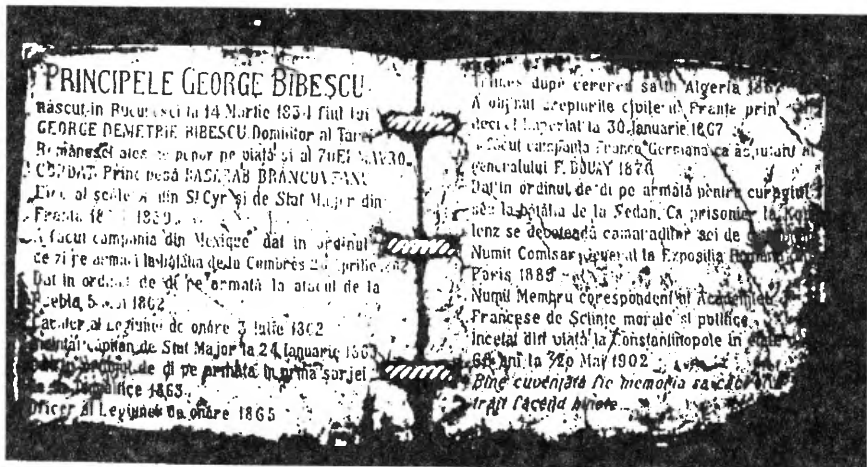 PRINCIPELE GEORGE BIBESCU
Născut in Bucuresci la 14 Martie 1834 fiul lui
GEORGE DEMETRIE BIBESCU Domnitor al Tarei
Românesci ales de popor pe viață și al ZOEI MAVRO-
CORDAT Princ pesă BASARAB BRÂNCOVEANU
al școle din St Cyr și de Stat Major din
Franta 1839
A făcut campania din Mexique dat in ordinul
de zi pe armată la bătălia de la Combres 28 Aprilie
Dat in ordinul de di pe armată la atacul de la
Puebla 5 1862
Cavaler al Legiunei de onóre 3 Iulie 1862
capitan de Stat Major la 24 Ianuarie 1863
de di pe armată in prima sarjei
1863
oficer al Legiunei de onóre 1865
Trimes după cererea sa in Algeria
A obtinut drepturile civile in Franta prin
decret Imperial la 30 Ianuarie 1867
A făcut campania Franco Germana ca adjutant al
generalului F. DOUAY 1870
Dat in ordinul de di pe armată pentru curagiul
séu la bătălia de la Sedan. Ca prisonier la Kob
lenz se devoteadă camaradilor sei de
Numit Comisar general la Expositia Română
Paris 1889
Numit Membru corespondent al Academiei
Francese de Științe morale si politice
Incetat din viață la Constantinopole in etate
68 ani la 7/20 Mai 1902
Bine cuventată fie memoria sa căci a
trăit făcend binele